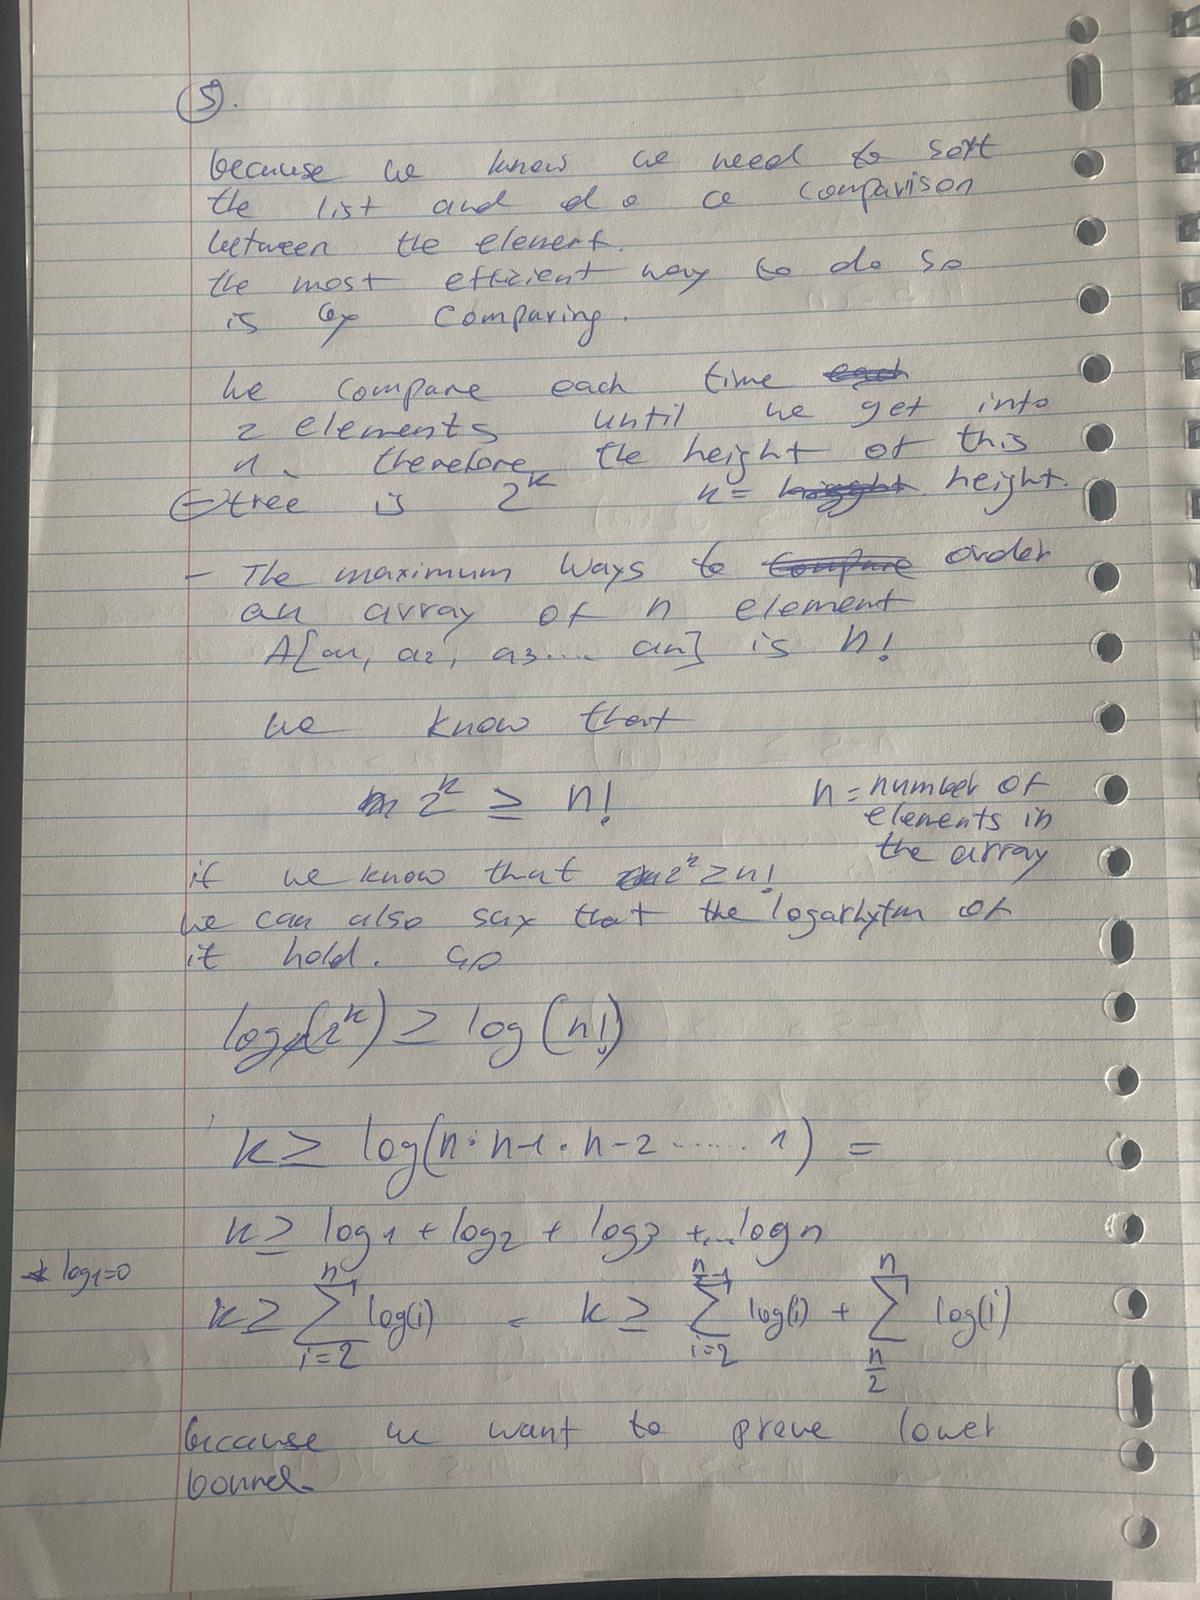 5.
because we know we need to sort
the list and do a comparison
between the element.
the most efficient way to do so
is by comparing.
we compare each time
2 elements until we get into
n. therefore the height of this
tree is 2^k k = height.
- The maximum ways to order
an array of n element
A[a1, a2, a3.... an] is n!
we know that
2^k ≥ n! n = number of
elements in
the array
if we know that 2^k ≥ n!
we can also say that the logarhytm of
it hold. so
log(2^k) ≥ log(n!)
k ≥ log(n · n-1 · n-2 ...... 1) =
k ≥ log1 + log2 + log3 +... logn
* log1=0
k ≥ ∑_{i=2}^{n} log(i) = k ≥ ∑_{i=2}^{n/2-1} log(i) + ∑_{n/2}^{n} log(i)
because we want to prove lower
bound.